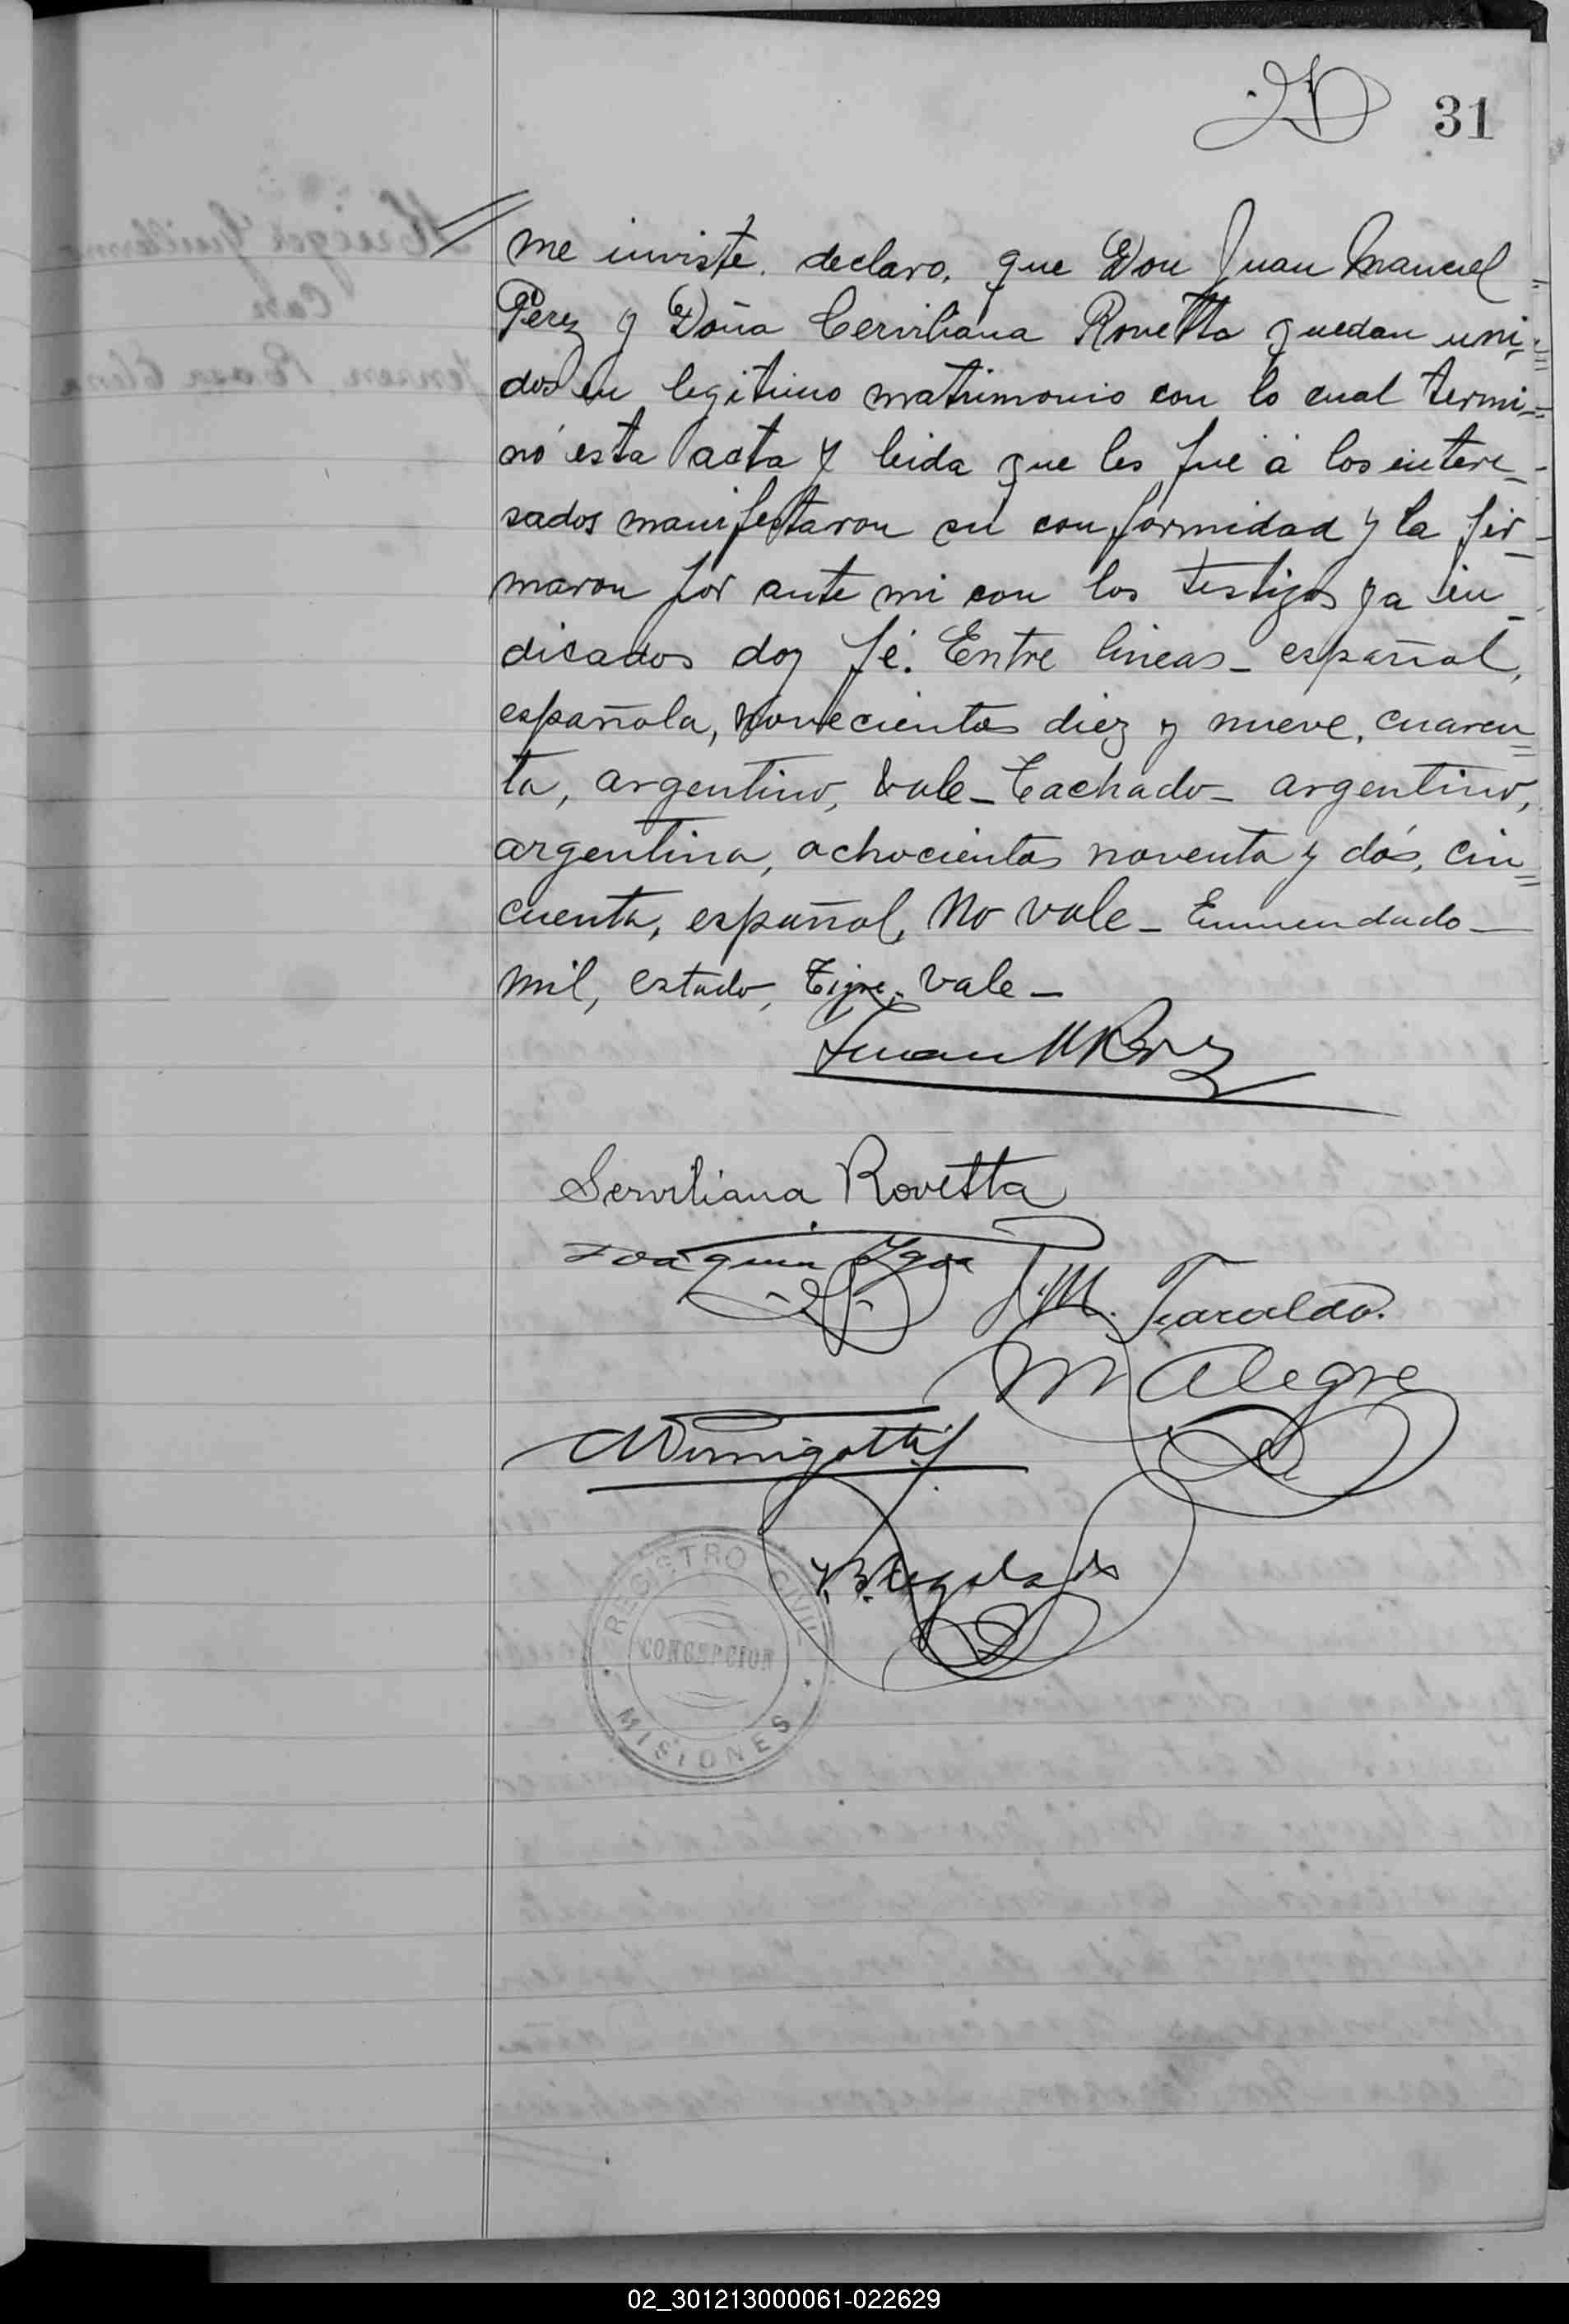 31
me inviste. declaro. que Don Juan Manuel
Perez y Doña Cerviliana Rovetta quedan uni=
dos en legitimo matrimonio con lo cual termi=
nó esta acta y leida que les fué á los intere-
sados manifestaron su conformidad y la fir-
maron por ante mi con los testigos ya in-
dicados doy fé. Entre lineas- español,
española, novecientos diez y nueve, cuaren=
ta, argentino, Vale- Tachado- argentino,
argentina, ochocientos noventa y dos, cin=
cuenta, español, No vale- Enmendado-
mil, estado, Tigre, Vale-
Juan M Perez
Serviliana Rovetta
Joaquin
J. M. Taraldo.
M Alegre
REGISTRO CIVIL
CONCEPCION
MISIONES
02_301213000061-022629